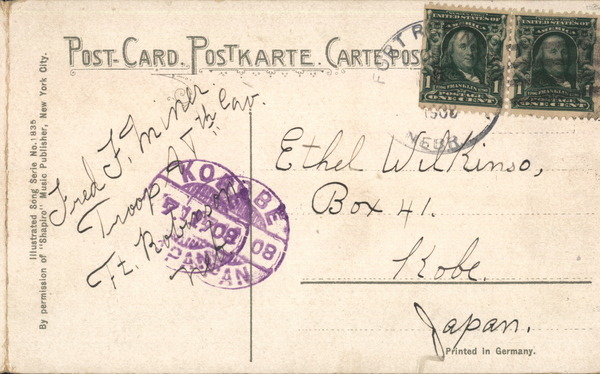 POST-CARD. POSTKARTE. CARTE POS
UNITED STATES OF AMERICA
FRANKLIN
1 ONE CENT 1
UNITED STATES OF AMERICA
FRANKLIN
1 ONE CENT 1
FORT R
1908
NEBR
Fred F. Miner
Troop "
" Cav.
Ft. Robinson
Neb
KOBE
JAPAN
Ethel Wilkinso,
Box 41.
Kobe.
Japan.
Illustrated Song Serie No. 1835
By permission of "Shapiro" Music Publisher, New York City.
Printed in Germany.